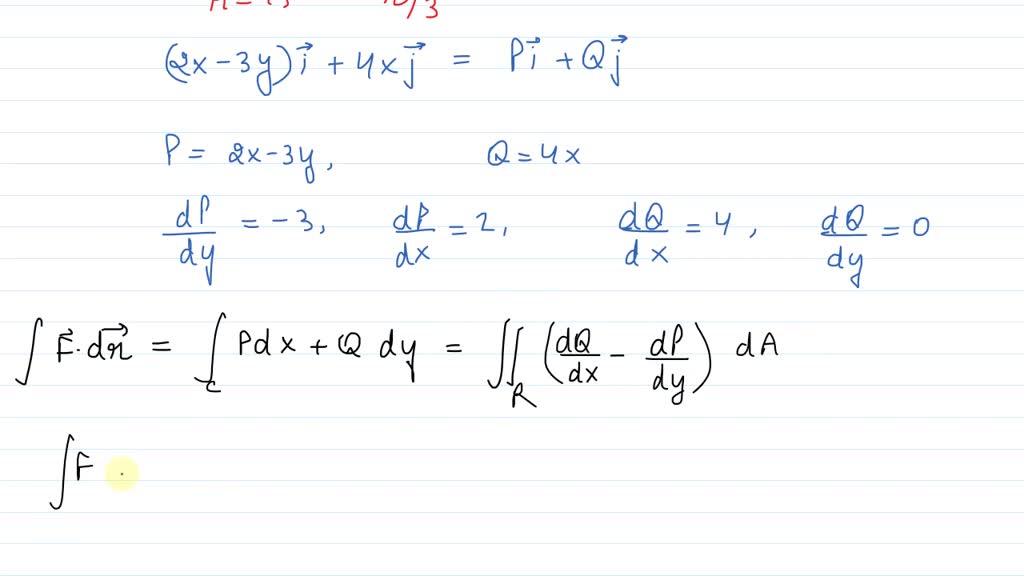 (2x-3y)i⃗ + 4xj⃗ = Pi⃗ + Qj⃗
P = 2x-3y, Q = 4x
dP/dy = -3, dP/dx = 2, dQ/dx = 4, dQ/dy = 0
∫ F⃗·dr⃗ = ∫_C Pdx + Q dy = ∬_R (dQ/dx - dP/dy) dA
∫F